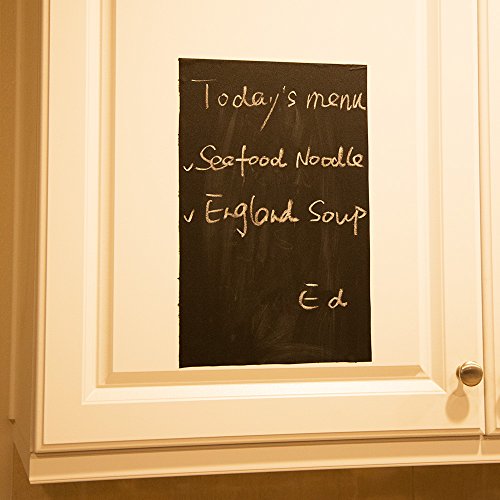 Today's menu
✓ Seafood Noodle
✓ England Soup
Ed